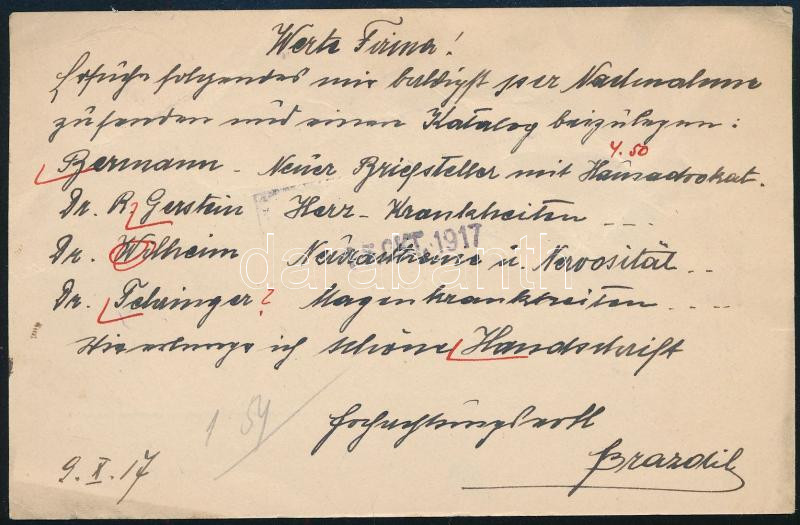 Werte Firma!
Ersuche folgendes mir baldigst per Nachnahme
zusenden und einen Katalog beizulegen:
4.50
Bermann - Neuer Briefsteller mit Hausadvokat.
Dr. R. Gerstein Herz-Krankheiten ....
Dr. Wilheim Neurasthenie u. Nervosität ..
Dr. Fehringer? Magenkrankheiten ....
Wie erlange ich schöne Handschrift
OKT. 1917
darabanth
1 54
Hochachtungsvoll
Brazdil
9. X. 17